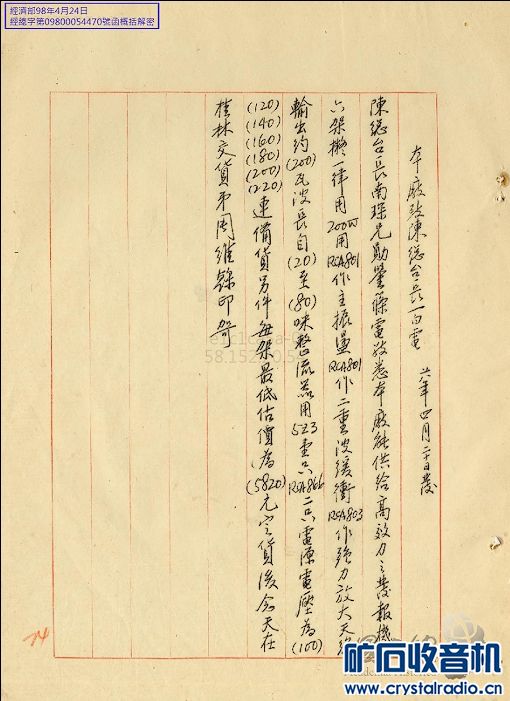 經濟部98年4月24日
經總字第09800054470號函概括解密
本廠致陳總台長一白電 廿六年四月二十日發
陳總台長南琛兄勛鑒篠電敬悉本廠能供給高效力之發報機
六架擬一律用200W用RCA801作主振量RCA801作二重波緩衝RCA803作強力放大天線
輸出約(200)瓦波長自(20)至(80)咪整流器用5Z3壹只RCA866二只電源電壓為(100)
(120)(140)(160)(180)(200)(220)連備貨另件每架最低估價為(5820)元定貨後念天在
桂林交貨弟周維幹印
74
矿石收音机
www.crystalradio.cn